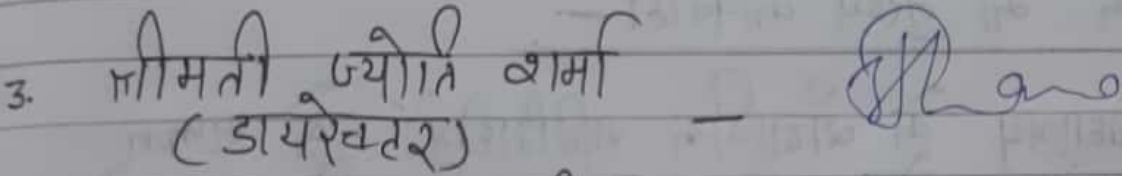 3. श्रीमती ज्योति शर्मा
(डायरेक्टर) -